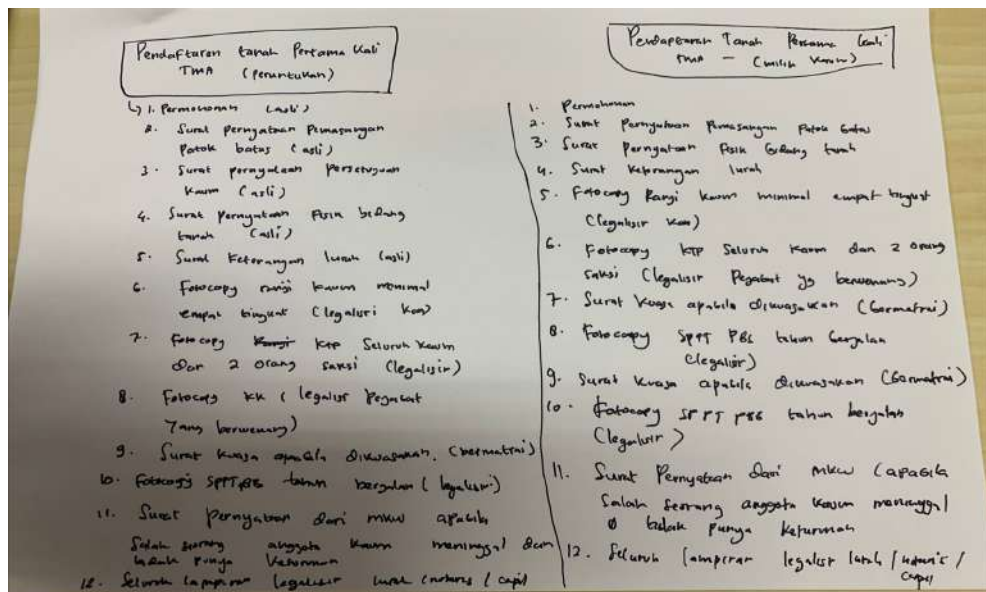 Pendaftaran tanah Pertama Kali
TMA (peruntukan)
↳ 1. Permohonan (asli)
2. Surat pernyataan Pemasangan
Patok batas (asli)
3. Surat pernyataan Persetujuan
Kaum (asli)
4. Surat Pernyataan Fisik bidang
tanah (asli)
5. Surat Keterangan lurah (asli)
6. Fotocopy ranji kaum minimal
empat tingkat (legalisir Kan)
7. Fotocopy KTP Seluruh Kaum
dan 2 orang saksi (legalisir)
8. Fotocopy KK (legalisir Pejabat
Yang berwenang)
9. Surat kuasa apabila dikuasakan. (bermatrai)
10. Fotocopy SPPT PBB tahun berjalan (legalisir)
11. Surat pernyataan dari mkw apabila
Salah seorang anggota kaum meninggal dan
tidak punya keturunan
12. Seluruh lampiran legalisir lurah / notaris / capil
Pendaftaran Tanah Pertama kali
TMA - (milik kaum)
1. Permohonan
2. Surat Pernyataan Pemasangan Patok batas
3. Surat Pernyataan Fisik bidang tanah
4. Surat Keterangan lurah
5. Fotocopy Ranji kaum minimal empat tingkat
(legalisir Kan)
6. Fotocopy KTP Seluruh Kaum dan 2 orang
saksi (legalisir Pejabat yg berwenang)
7. Surat Kuasa apabila dikuasakan (bermatrai)
8. Fotocopy SPPT PBB tahun berjalan
(legalisir)
9. Surat Kuasa apabila dikuasakan (bermatrai)
10. Fotocopy SPPT PBB tahun berjalan
(legalisir)
11. Surat Pernyataan dari mkw (apabila
Salah seorang anggota kaum meninggal
tidak punya keturunan
12. Seluruh lampiran legalisir lurah / notaris /
capil